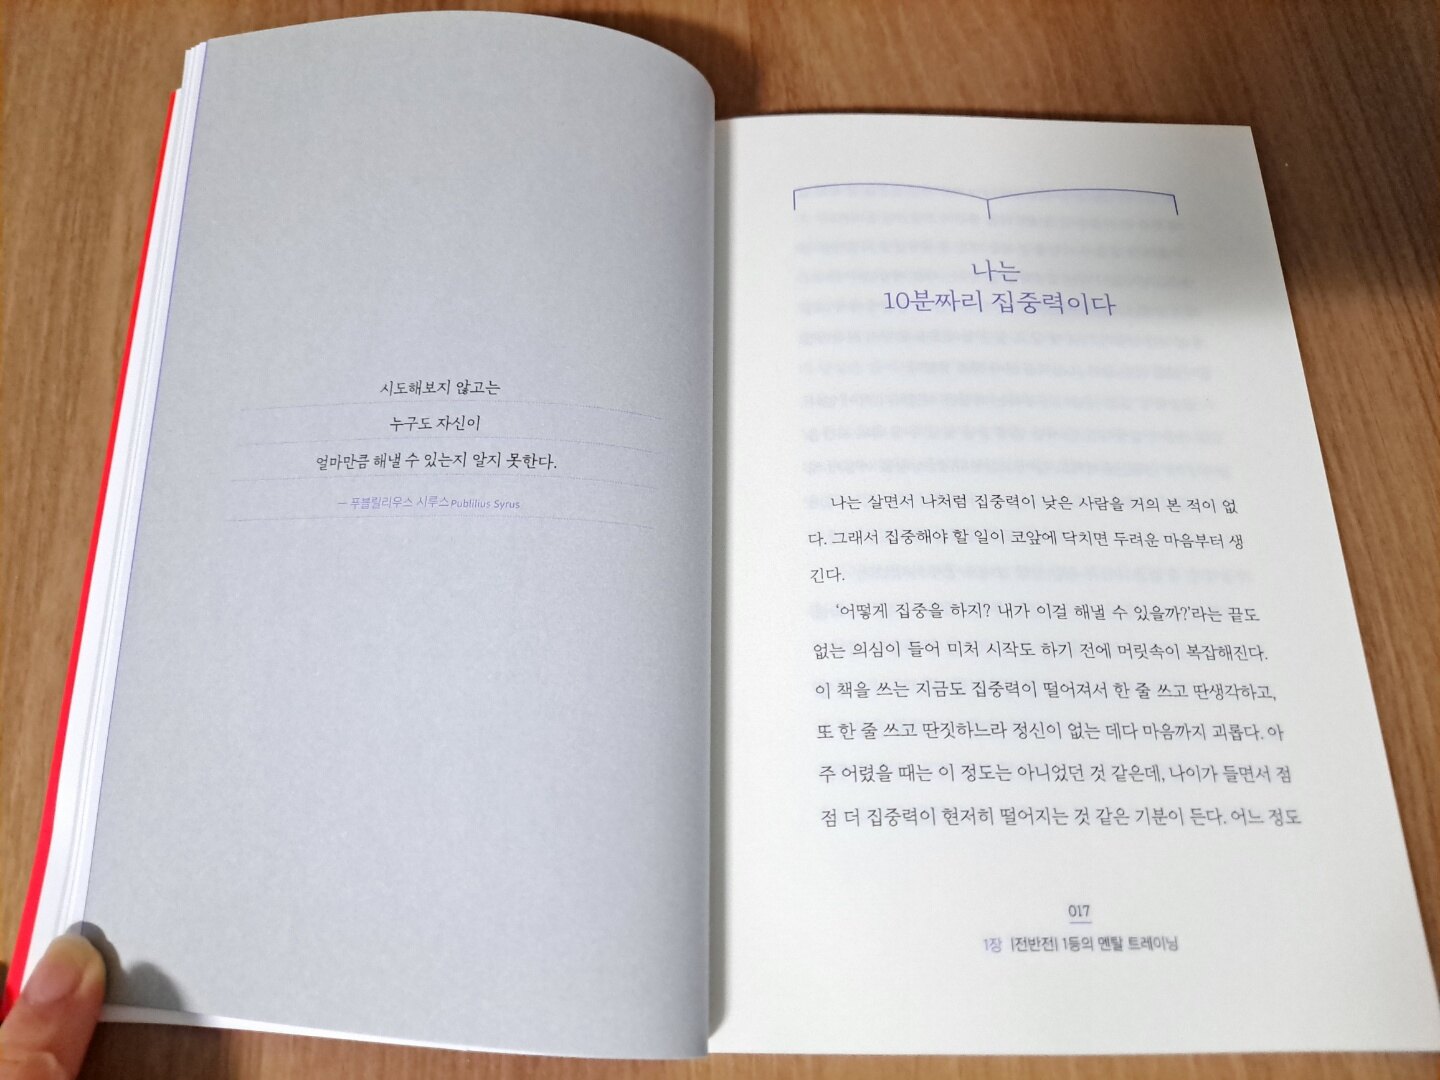 시도해보지 않고는
누구도 자신이
얼마만큼 해낼 수 있는지 알지 못한다.
— 푸블릴리우스 시루스 Publilius Syrus
나는
10분짜리 집중력이다
나는 살면서 나처럼 집중력이 낮은 사람을 거의 본 적이 없
다. 그래서 집중해야 할 일이 코앞에 닥치면 두려운 마음부터 생
긴다.
‘어떻게 집중을 하지? 내가 이걸 해낼 수 있을까?’라는 끝도
없는 의심이 들어 미처 시작도 하기 전에 머릿속이 복잡해진다.
이 책을 쓰는 지금도 집중력이 떨어져서 한 줄 쓰고 딴생각하고,
또 한 줄 쓰고 딴짓하느라 정신이 없는 데다 마음까지 괴롭다. 아
주 어렸을 때는 이 정도는 아니었던 것 같은데, 나이가 들면서 점
점 더 집중력이 현저히 떨어지는 것 같은 기분이 든다. 어느 정도
017
1장 |전반전| 1등의 멘탈 트레이닝